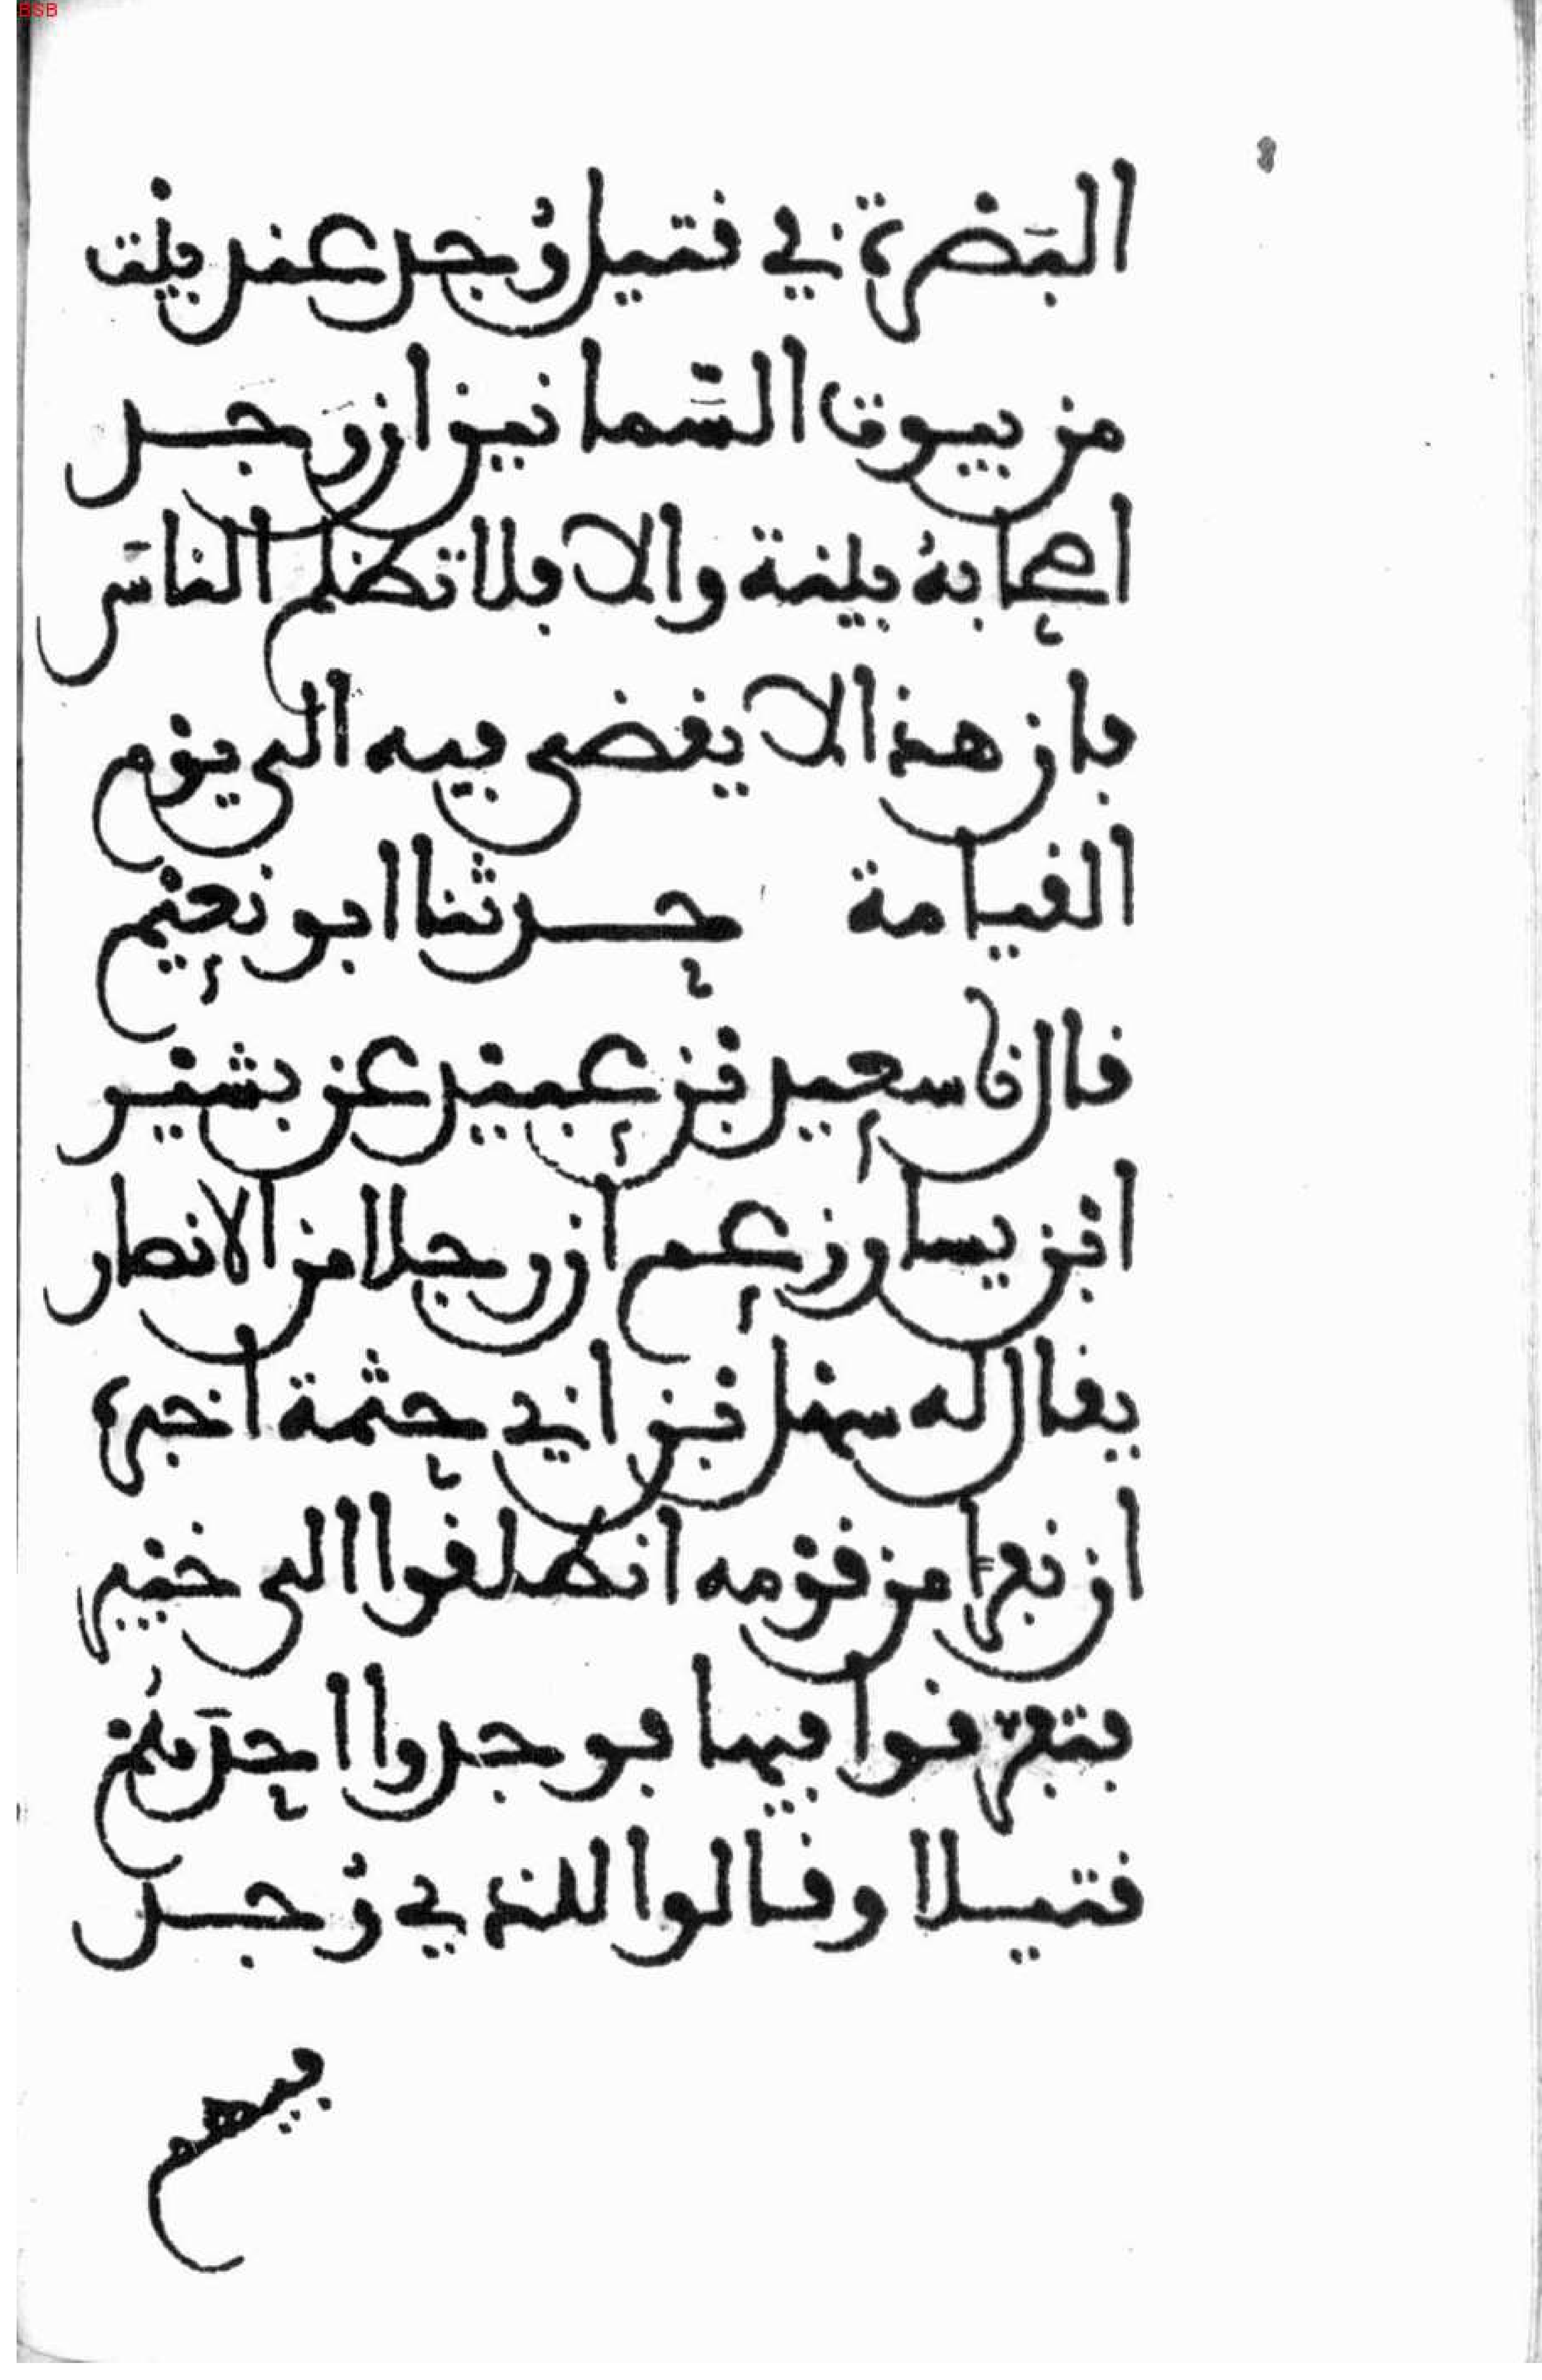 البَصْرة في قتيل وُجد عند بيْت
من بيوت السَّمانين ان وَجد
اصحابهُ بينة والا فلا تظلم الناسَ
فان هذا لا يقضى فيه الى يوْم
القيامة حدثنا ابو نعيْم
قال نا سعيد بْن عبيْد عن بشيْر
ابْن يسار زعم ان رجلا من الانصار
يقال له سهْل بْن ابي حثْمة اخبره
ان نفرًا من قوْمه انطلقوا الى خيْبر
فتفرّقوا فيها فوجدوا احدَهُمْ
قتيلا وقالوا للذي وُجد
فيهم